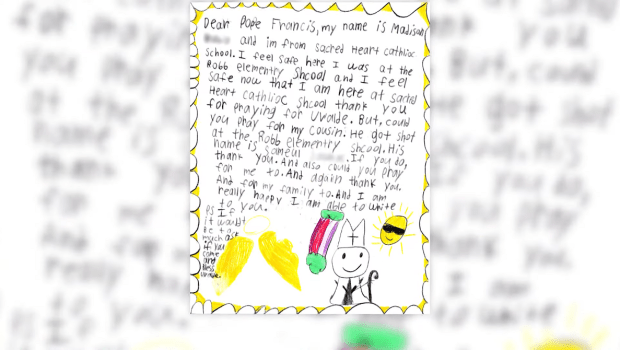 Dear Pope Francis, my name is Madison
and im from sacred Heart cathlioc
school. I feel safe here I was at the
Robb elementry Shcool and I feel
safe now that I am here at sacred
Heart cathlioc shcool thank you
for praying for Uvalde. But, could
you pray for my cousin. He got shot
at the Robb elementry shcool. His
name is Sameul . If you do,
thank you. And also could you pray
for me to. And again thank you.
And for my family to. And I am
really happy I am able to write
to you.
Ps I f
it would
be
much as
if you
came
and
bless